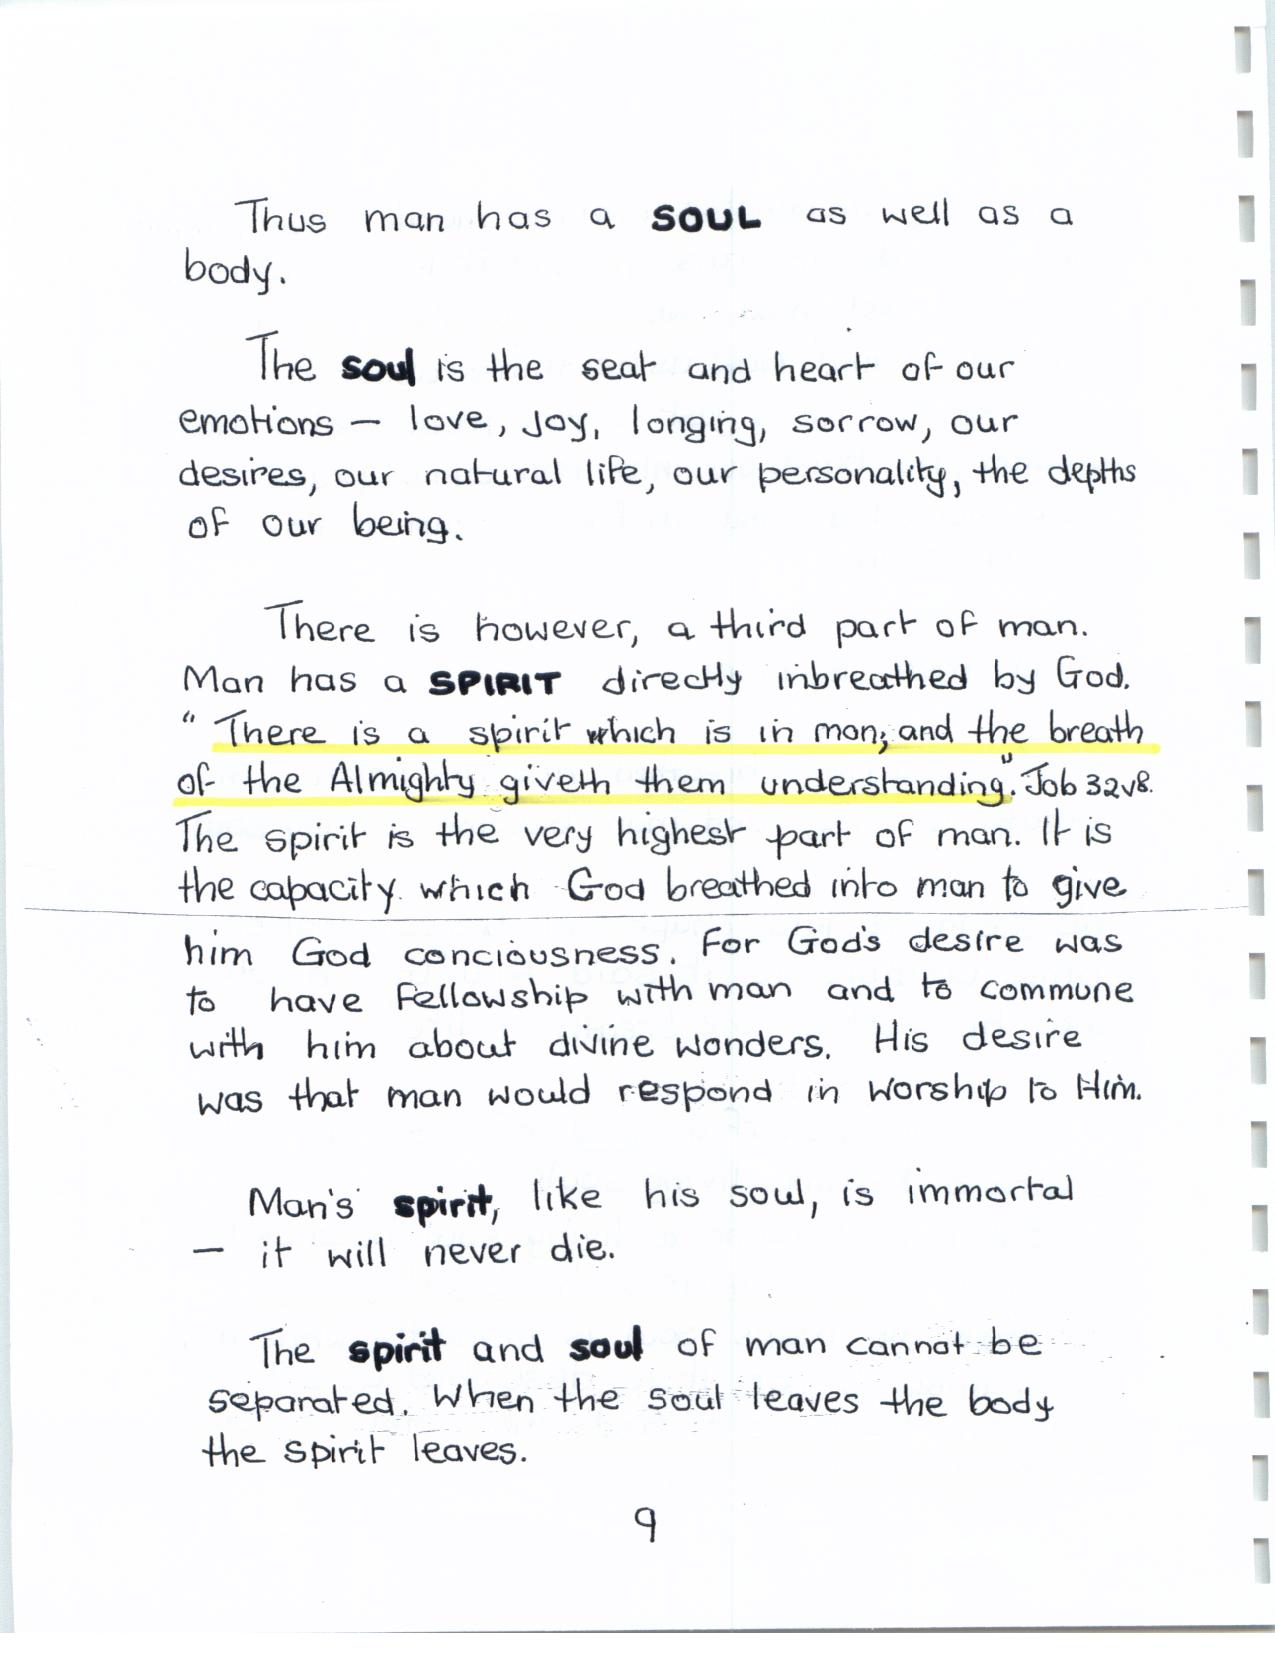 Thus man has a SOUL as well as a
body.
The soul is the seat and heart of our
emotions — love, joy, longing, sorrow, our
desires, our natural life, our personality, the depths
of our being.
There is however, a third part of man.
Man has a SPIRIT directly inbreathed by God.
"There is a spirit which is in man; and the breath
of the Almighty giveth them understanding". Job 32v8.
The spirit is the very highest part of man. It is
the capacity which God breathed into man to give
him God conciousness. For God's desire was
to have fellowship with man and to commune
with him about divine wonders. His desire
was that man would respond in worship to Him.
Man's spirit, like his soul, is immortal
— it will never die.
The spirit and soul of man cannot be
separated. When the soul leaves the body
the spirit leaves.
9